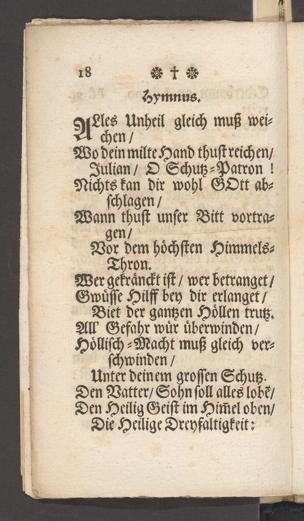 18 ❊ † ❊
Hymnus.
ALles Unheil gleich muß wei-
chen /
Wo dein milte Hand thust reichen /
Julian / O Schutz-Patron !
Nichts kan dir wohl GOtt ab-
schlagen /
Wann thust unser Bitt vortra-
gen /
Vor dem höchsten Himmels-
Thron.
Wer gekränckt ist / wer betranget /
Gwüsse Hilff bey dir erlanget /
Biet der gantzen Höllen trutz.
All' Gefahr wür überwinden /
Höllisch-Macht muß gleich ver-
schwinden /
Unter deinem grossen Schutz.
Den Vatter / Sohn soll alles lobẽ /
Den Heilig Geist im Him̃el oben /
Die Heilige Dreyfaltigkeit :